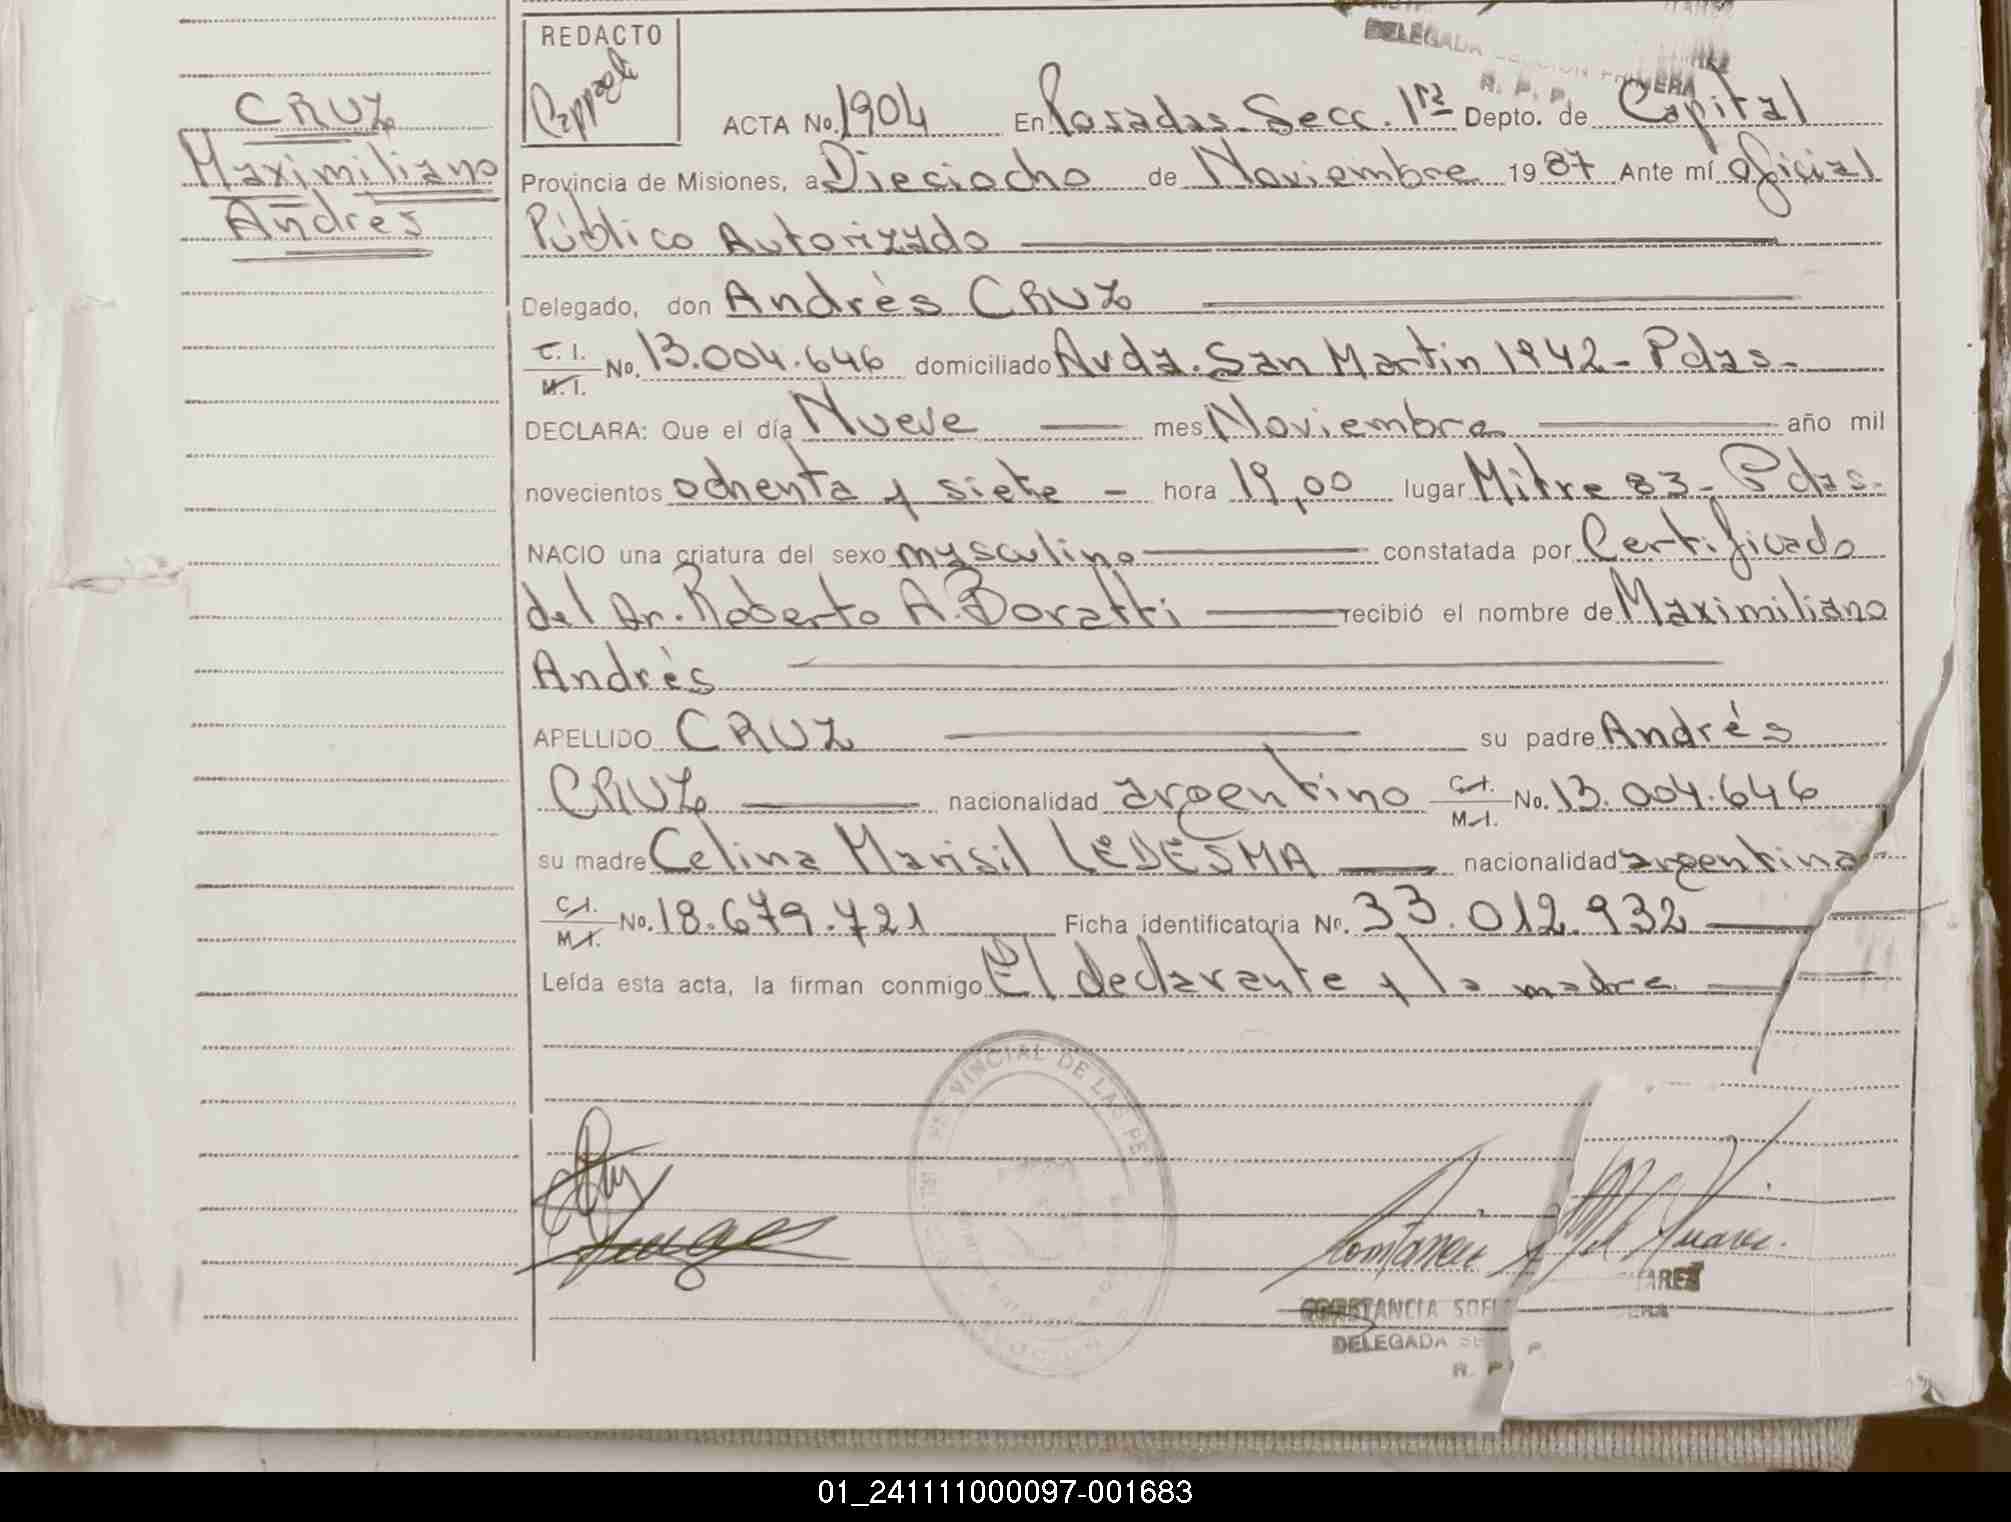 CRUZ
Maximiliano
Andrés
REDACTO
DELEGADA SECCION PRIMERA
R. P. P.
ACTA No. 1904 En Posadas-Secc. 1ra Depto. de Capital
Provincia de Misiones, a Dieciocho de Noviembre 1987 Ante mí oficial
Público Autorizado
Delegado, don Andrés CRUZ
C. I.
M. I.
No. 13.004.646 domiciliado Avda. San Martin 1942 - Pdas-
DECLARA: Que el día Nueve mes Noviembre año mil
novecientos ochenta y siete - hora 19,00 lugar Mitre 83- Pdas-
NACIO una criatura del sexo masculino constatada por Certificado
del Dr. Roberto A. Boratti recibió el nombre de Maximiliano
Andrés
APELLIDO CRUZ su padre Andrés
CRUZ nacionalidad argentino C.I. M.I. No. 13.004.646
su madre Celina Marisil LEDESMA nacionalidad argentina
C.I. M.I. No. 18.679.721 Ficha identificatoria No. 33.012.932
Leída esta acta, la firman conmigo El declarante y la madre
PROVINCIAL DE LAS PER
CONSTANCIA SOFI AREZ
DELEGADA SE ERA
R. P. P.
01_241111000097-001683